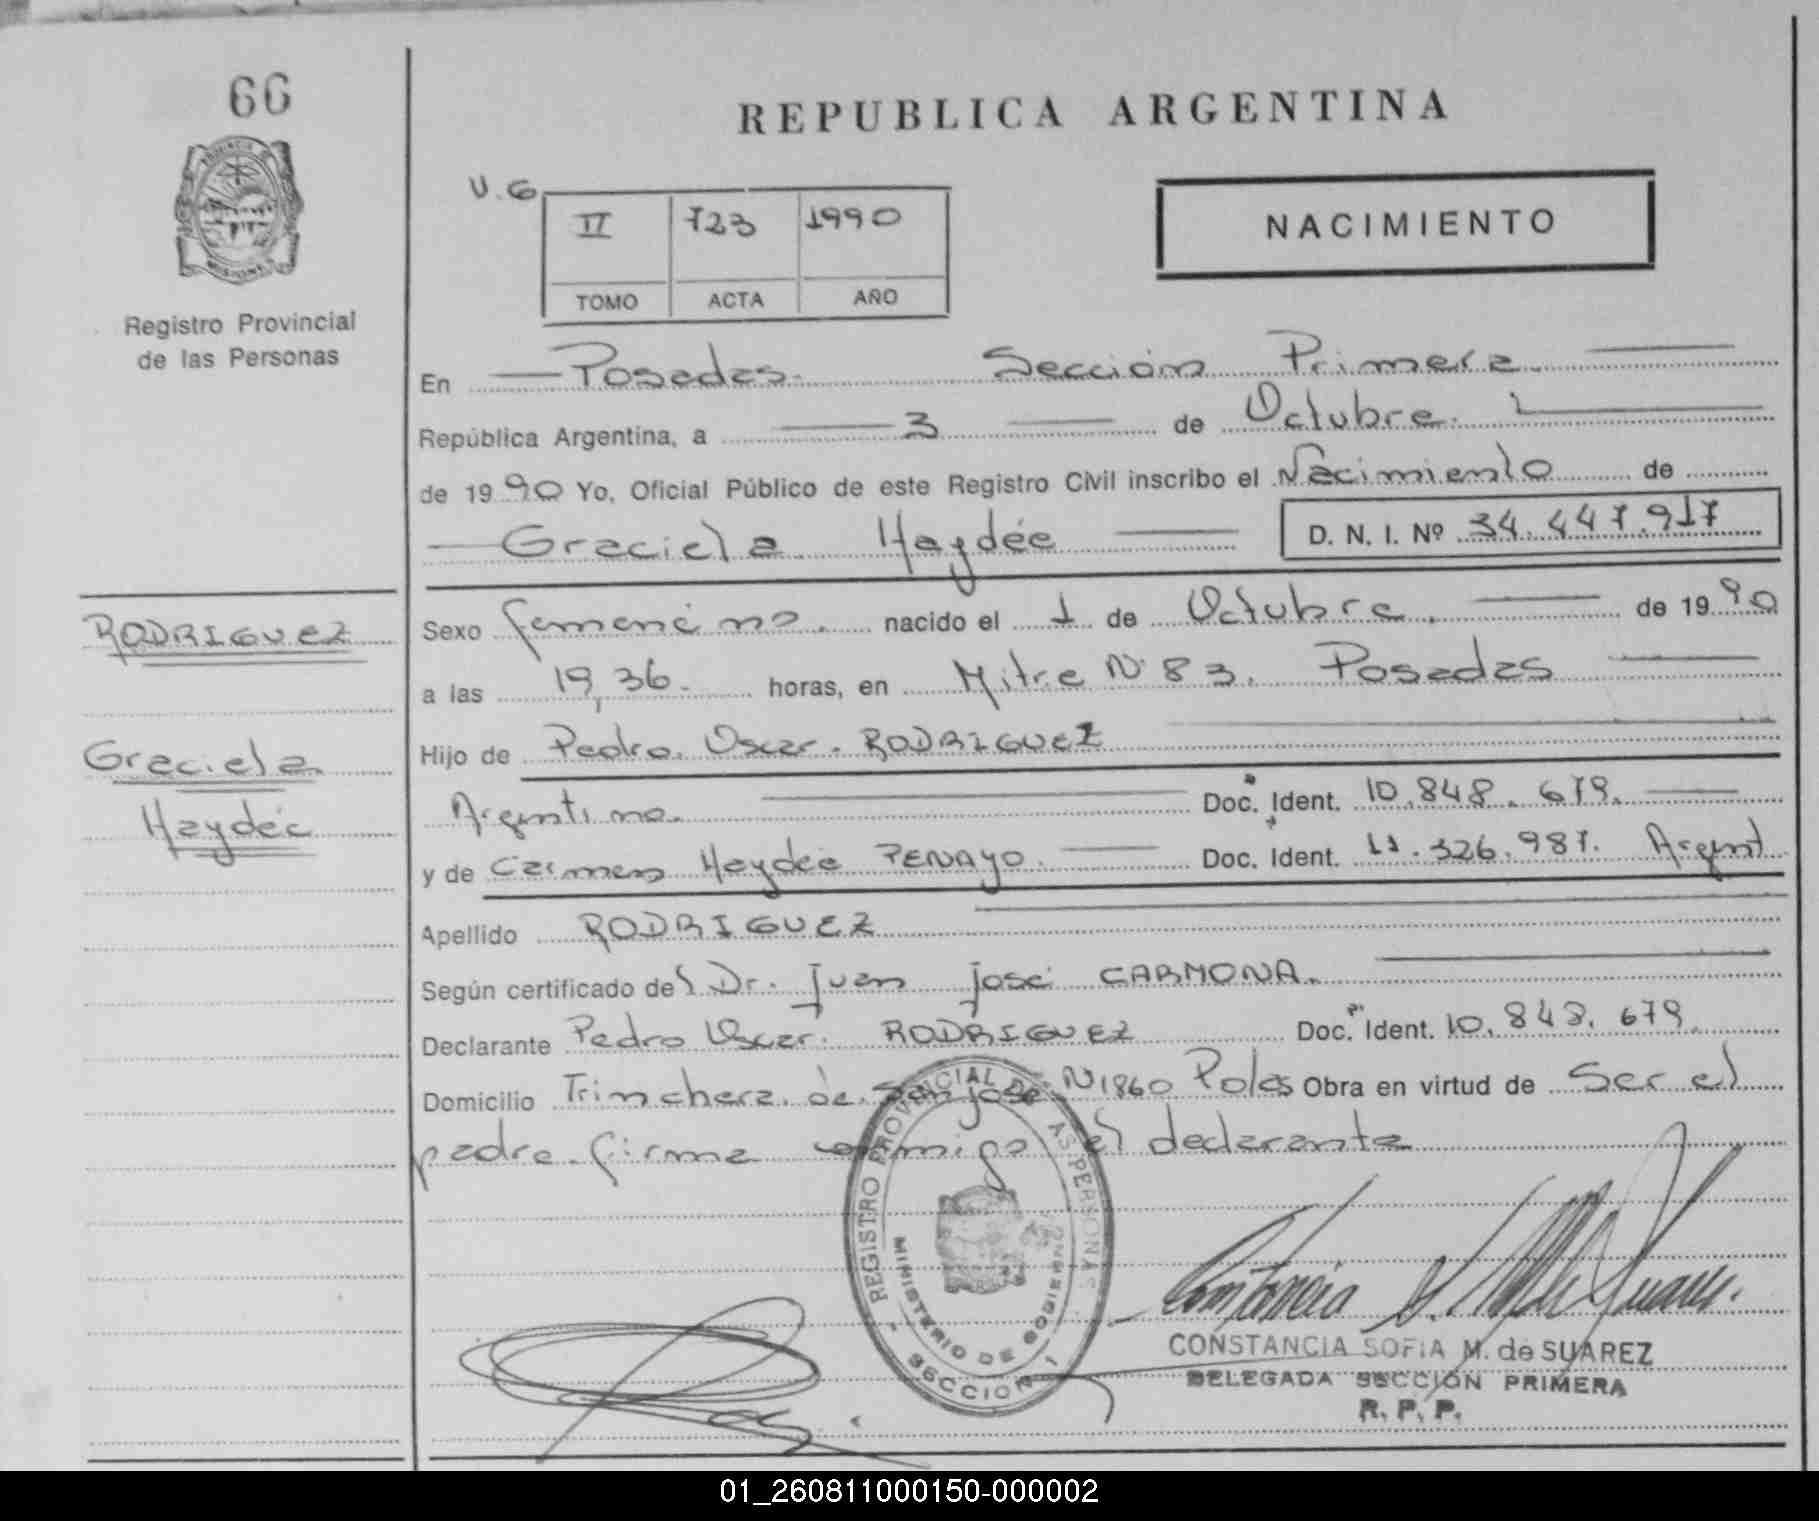 66
REPUBLICA ARGENTINA
V. G
II 723 1990
TOMO ACTA AÑO
NACIMIENTO
PROVINCIA DE
MISIONES
Registro Provincial
de las Personas
En Posadas. Sección Primera
República Argentina, a 3 de Octubre.
de 1990 Yo, Oficial Público de este Registro Civil inscribo el Nacimiento de
Graciela Haydée D. N. I. Nº 34.447.917
RODRIGUEZ
Graciela
Haydée
Sexo femenino. nacido el 1 de Octubre. de 1990
a las 19,36. horas, en Mitre Nº 83. Posadas
Hijo de Pedro. Oscar. RODRIGUEZ
Argentino. Doc. Ident. 10.848.679.
y de Carmen Haydée PENAYO. Doc. Ident. 11.326.987. Argent
Apellido RODRIGUEZ
Según certificado del Dr. Juan José CARMONA.
Declarante Pedro Oscar. RODRIGUEZ Doc. Ident. 10.848.679.
Domicilio Trinchera de San José Nº 1860 Obra en virtud de Ser el
padre. firma conmigo el declarante
REGISTRO PROVINCIAL DE LAS PERSONAS
MINISTERIO DE GOBIERNO
SECCION 1
CONSTANCIA SOFIA M. de SUAREZ
DELEGADA SECCION PRIMERA
R. P. P.
01_260811000150-000002